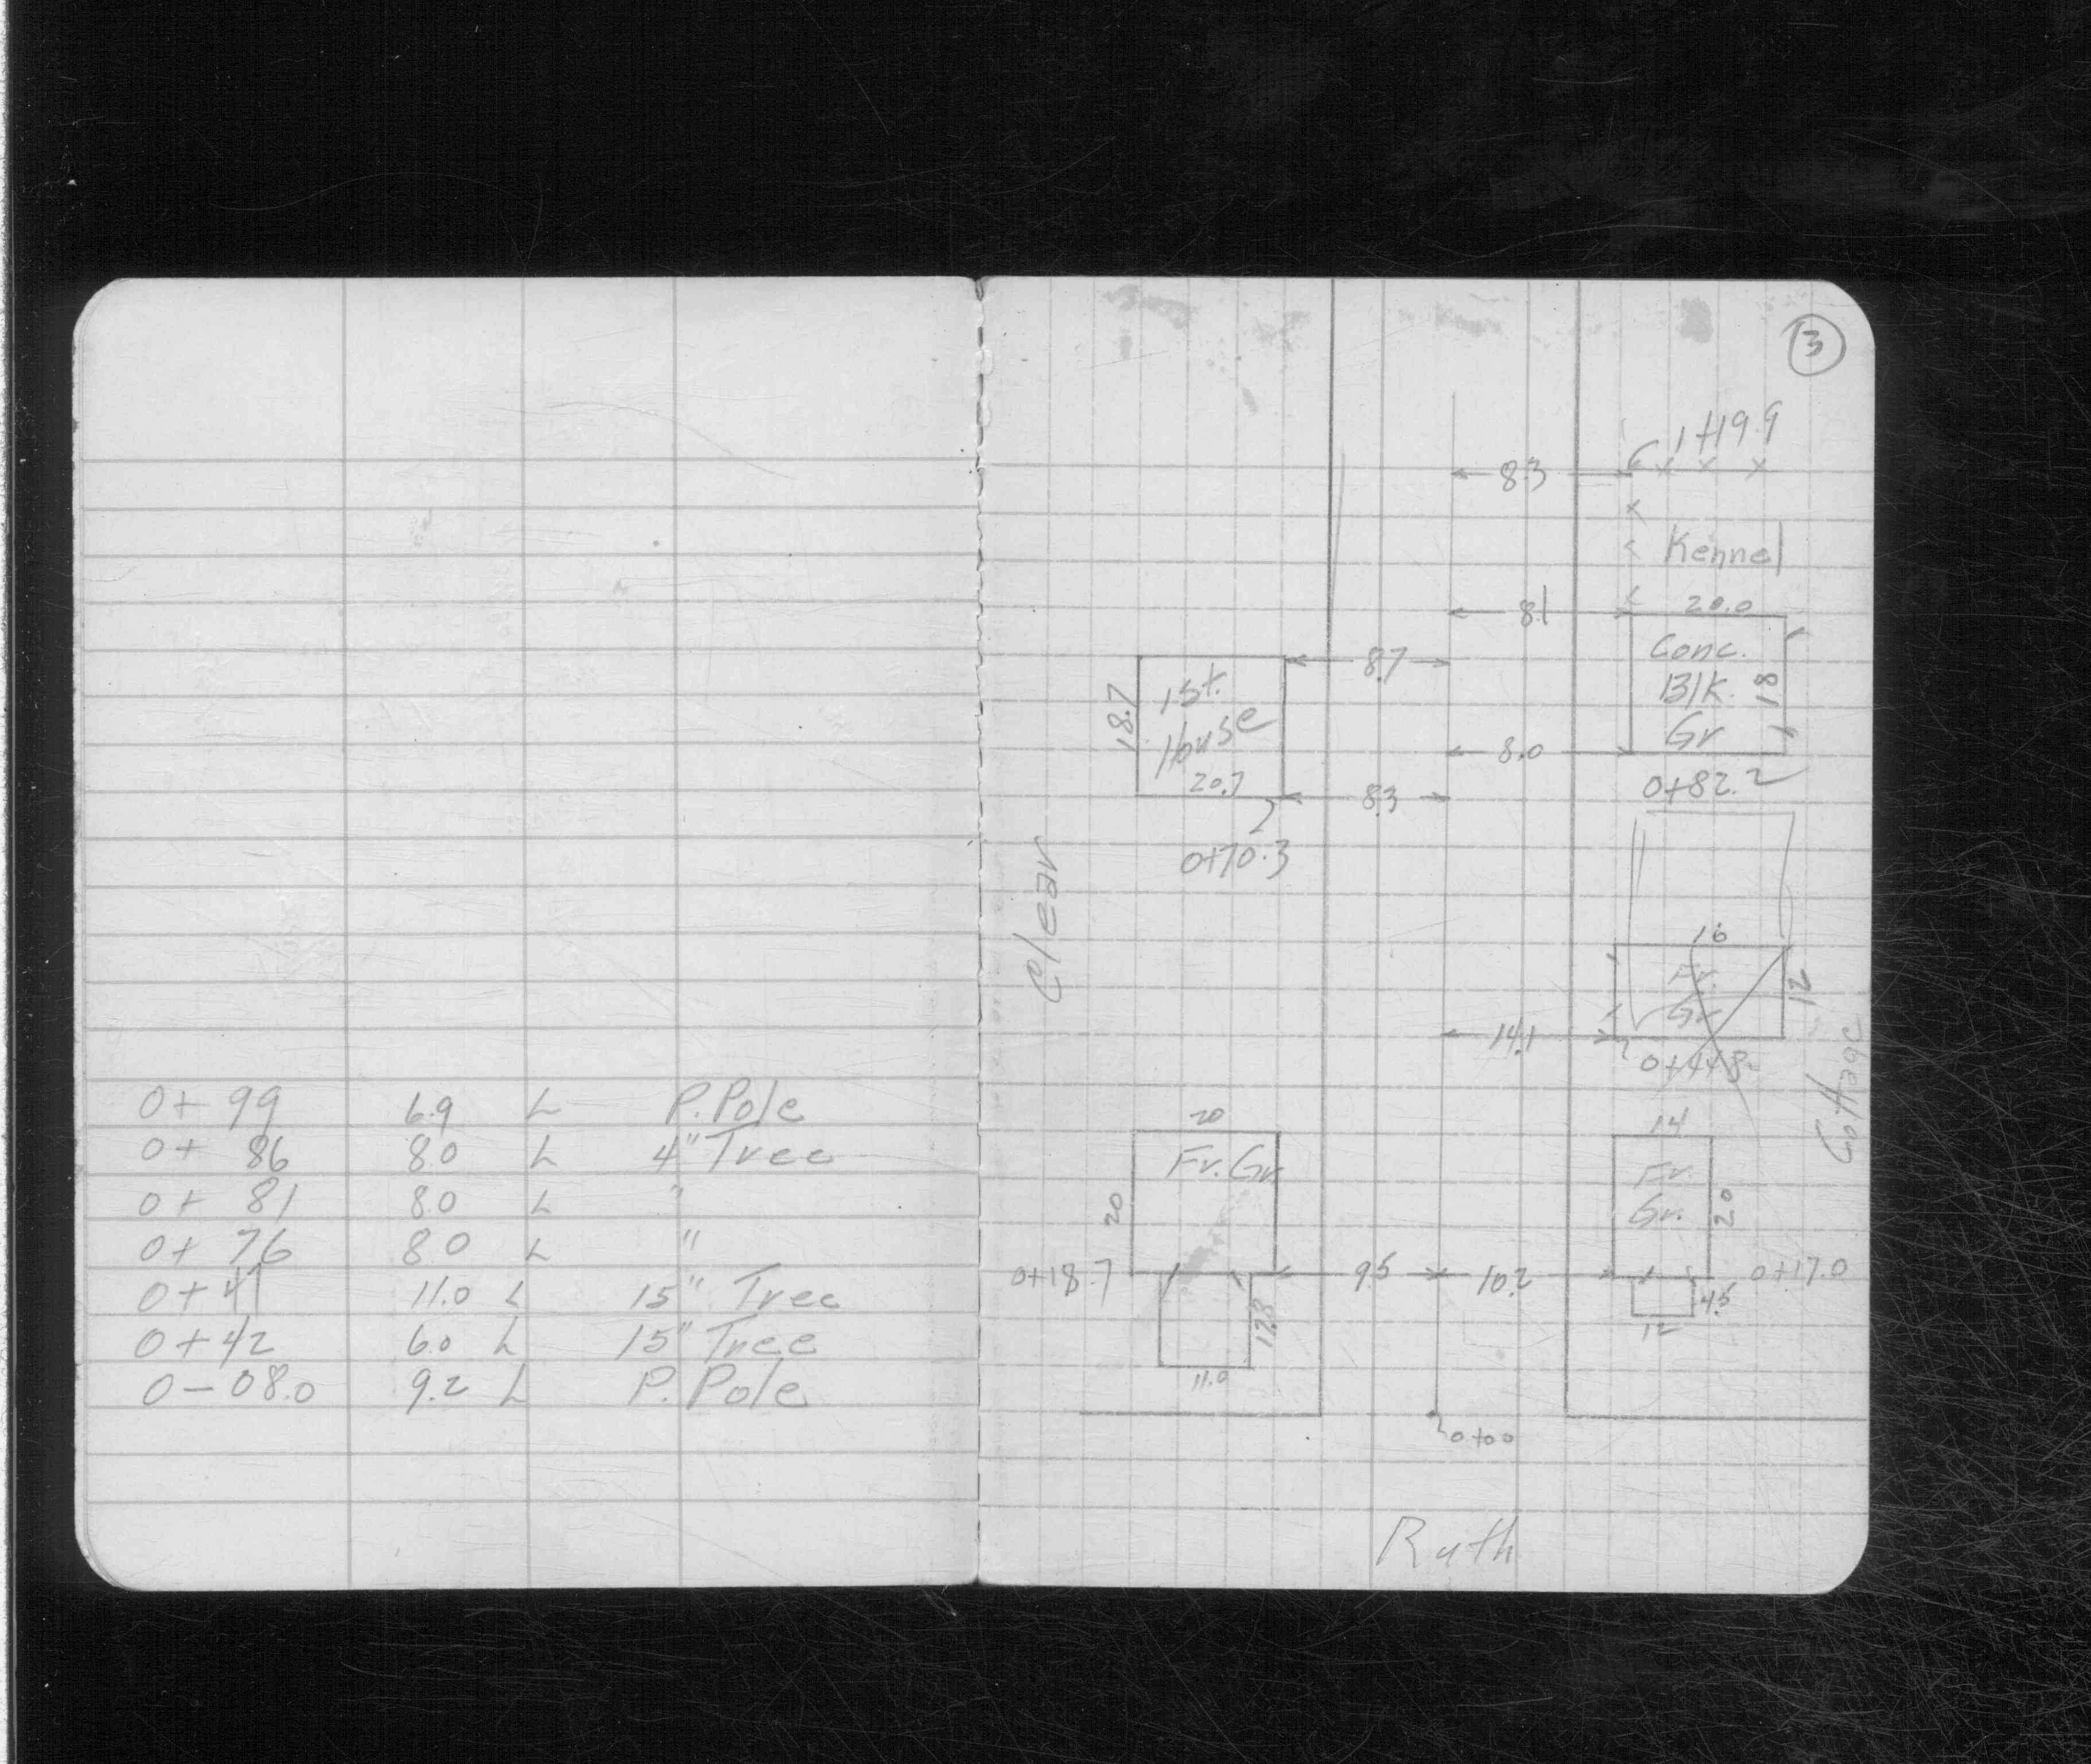 0+99 6.9 L P.Pole
0+86 8.0 L 4" Tree
0+81 8.0 L "
0+76 8.0 L "
0+41 11.0 L 15" Tree
0+42 6.0 L 15" Tree
0-08.0 9.2 L P.Pole
3
1+19.9
8.3
Kennel
8.1 20.0
Conc.
Blk. 18
Gr
8.7
18.7 1 St.
House
20.7
8.0
0+82.2
8.3
0+70.3
Clear
16
Fr.
Gr 12
14.1
0+44.8
Cottage
20
Fr. Gr.
20
14
Fr.
Gr. 20
0+18.7 9.5 10.2 0+17.0
17.8 4.5
12
11.0
0+00
Ruth